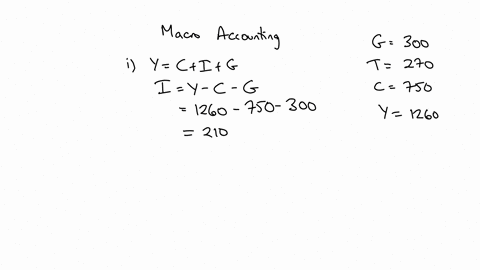 Macro Accounting
i) Y = C + I + G
I = Y - C - G
= 1260 - 750 - 300
= 210
G = 300
T = 270
C = 750
Y = 1260